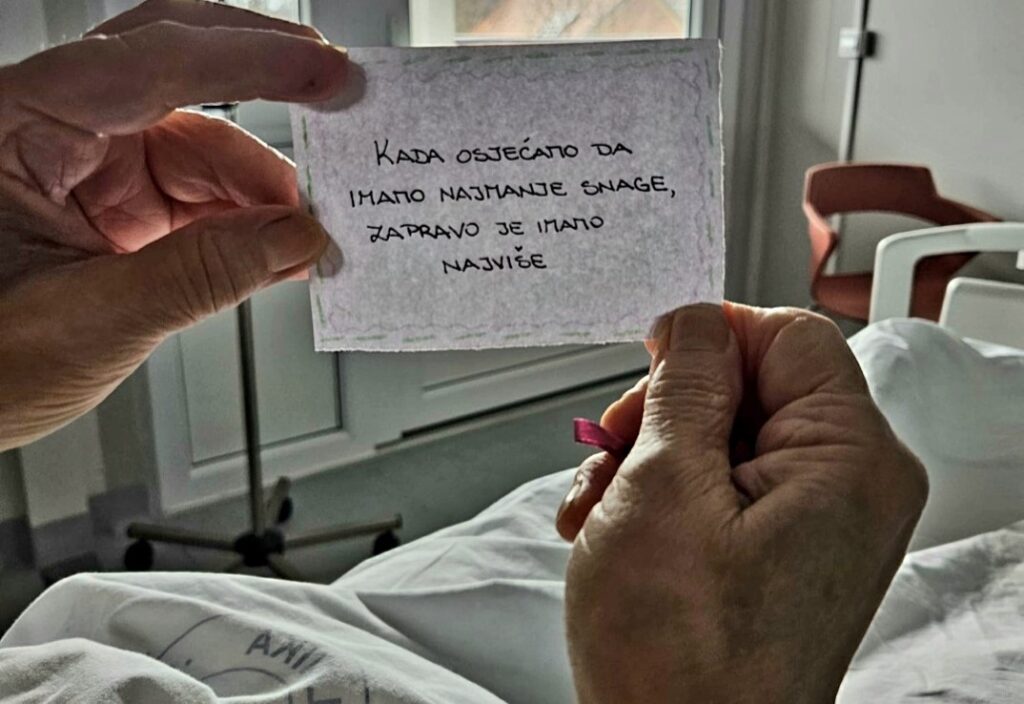 KADA OSJEĆAMO DA
IMAMO NAJMANJE SNAGE,
ZAPRAVO JE IMAMO
NAJVIŠE